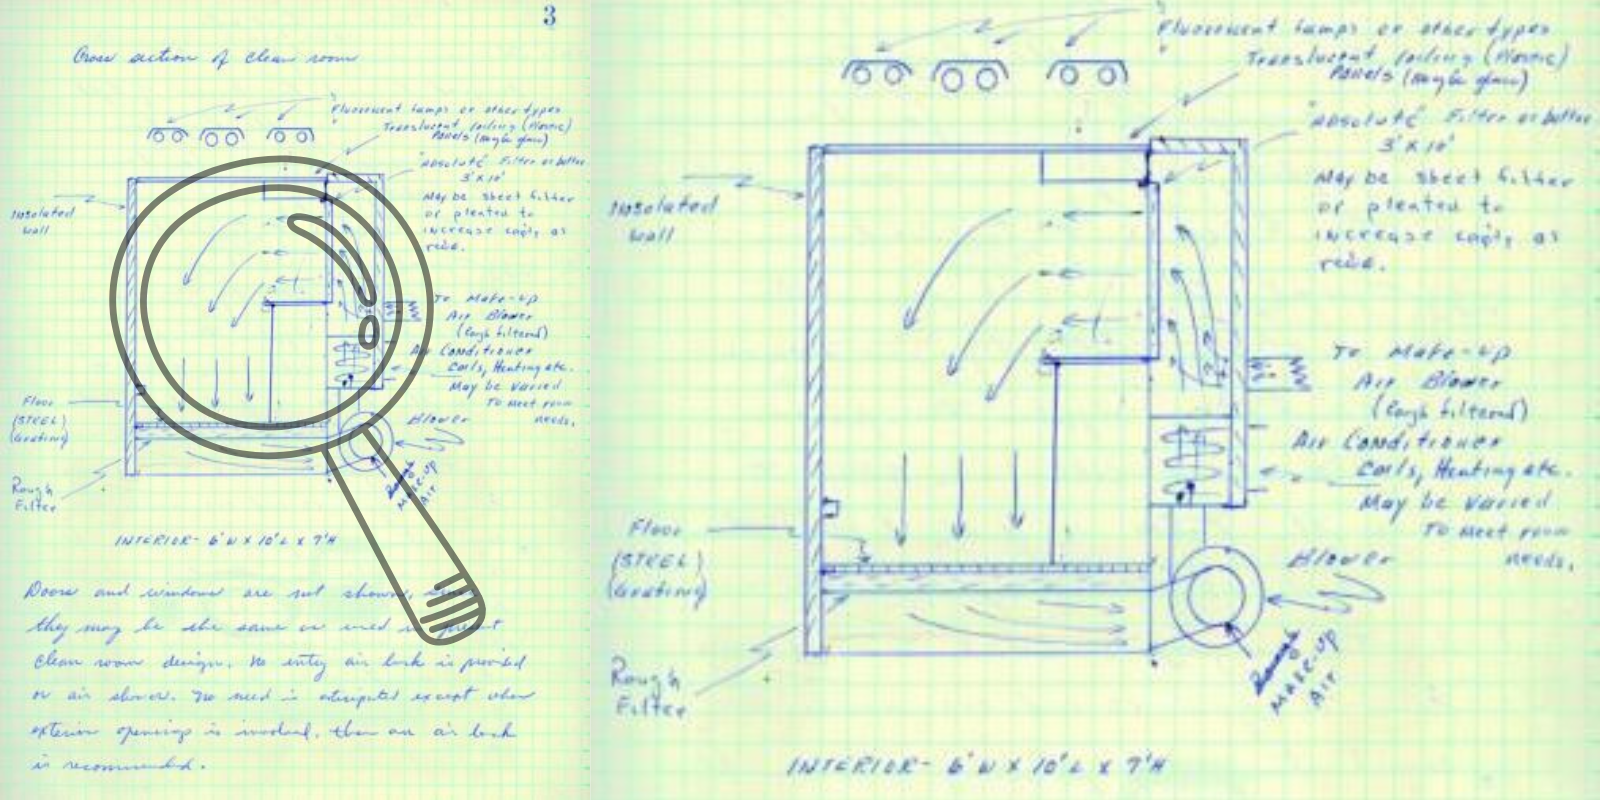 3
Cross section of clean room
Fluorescent lamps or other types
Translucent ceiling (Plastic)
Panels (maybe glass)
"Absolute" Filter or better
3' x 10'
May be sheet filter
or pleated to
increase
as
Insolated
wall
To Make-up
Air Blower
(Rough filtered)
Air Conditioner
Coils, Heating etc.
May be Varied
To meet room
needs.
Blower
Make-up
Air
Floor
(STEEL)
(Grating)
Rough
Filter
INTERIOR- 6'W x 10'L x 7'H
Doors and windows are not shown, since
they may be the same as used in present
clean room design. No entry air lock is provided
or air shower. No need is anticipated except when
exterior openings is involved, then an air lock
is recommended.
Fluorescent lamps or other types
Translucent ceiling (Plastic)
Panels (maybe glass)
"Absolute" Filter or better
3' x 10'
May be sheet filter
or pleated to
increase
as
Insolated
wall
To Make-up
Air Blower
(Rough filtered)
Air Conditioner
Coils, Heating etc.
May be Varied
To meet room
needs.
Blower
Make-up
Air
Floor
(STEEL)
(Grating)
Rough
Filter
INTERIOR- 6'W x 10'L x 7'H